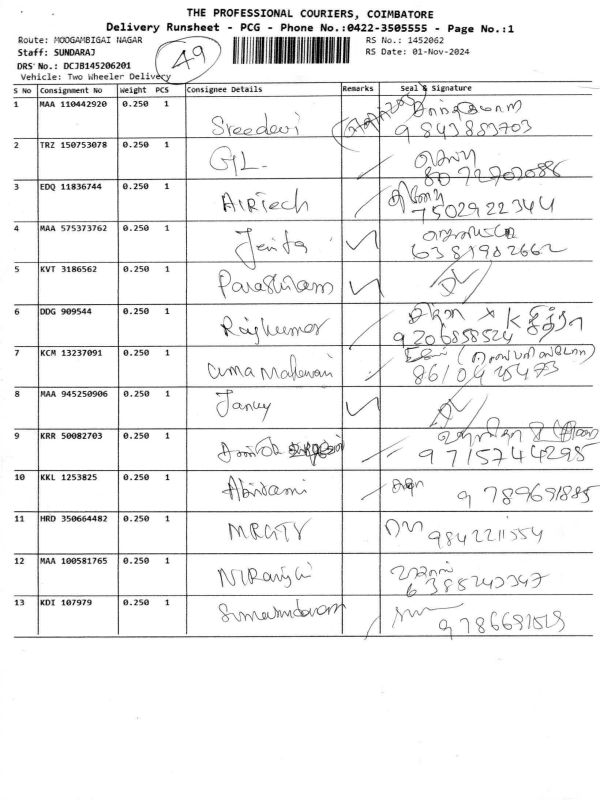 THE PROFESSIONAL COURIERS, COIMBATORE
Delivery Runsheet - PCG - Phone No.:0422-3505555 - Page No.:1
Route: MOOGAMBIGAI NAGAR
Staff: SUNDARAJ
DRS No.: DCJB145206201
Vehicle: Two Wheeler Delivery
49
RS No.: 1452062
RS Date: 01-Nov-2024
S No Consignment No Weight PCS Consignee Details Remarks Seal & Signature
1 MAA 110442920 0.250 1 Sreedevi
9843883703
2 TRZ 150753078 0.250 1 GL.
3 EDQ 11836744 0.250 1 AIRTech
7502922344
4 MAA 575373762 0.250 1 Jenifa
6381982662
5 KVT 3186562 0.250 1 Parasuram DL
6 DDG 909544 0.250 1 Rajkumar
9206858524
7 KCM 13237091 0.250 1 Uma Maheswari
8610428473
8 MAA 945250906 0.250 1 Jancy DL
9 KRR 50082703 0.250 1
9715744295
10 KKL 1253825 0.250 1 Abirami
9789691885
11 HRD 350664482 0.250 1
9842211554
12 MAA 100581765 0.250 1 Niranjan
6385243347
13 KDI 107979 0.250 1
9786691519